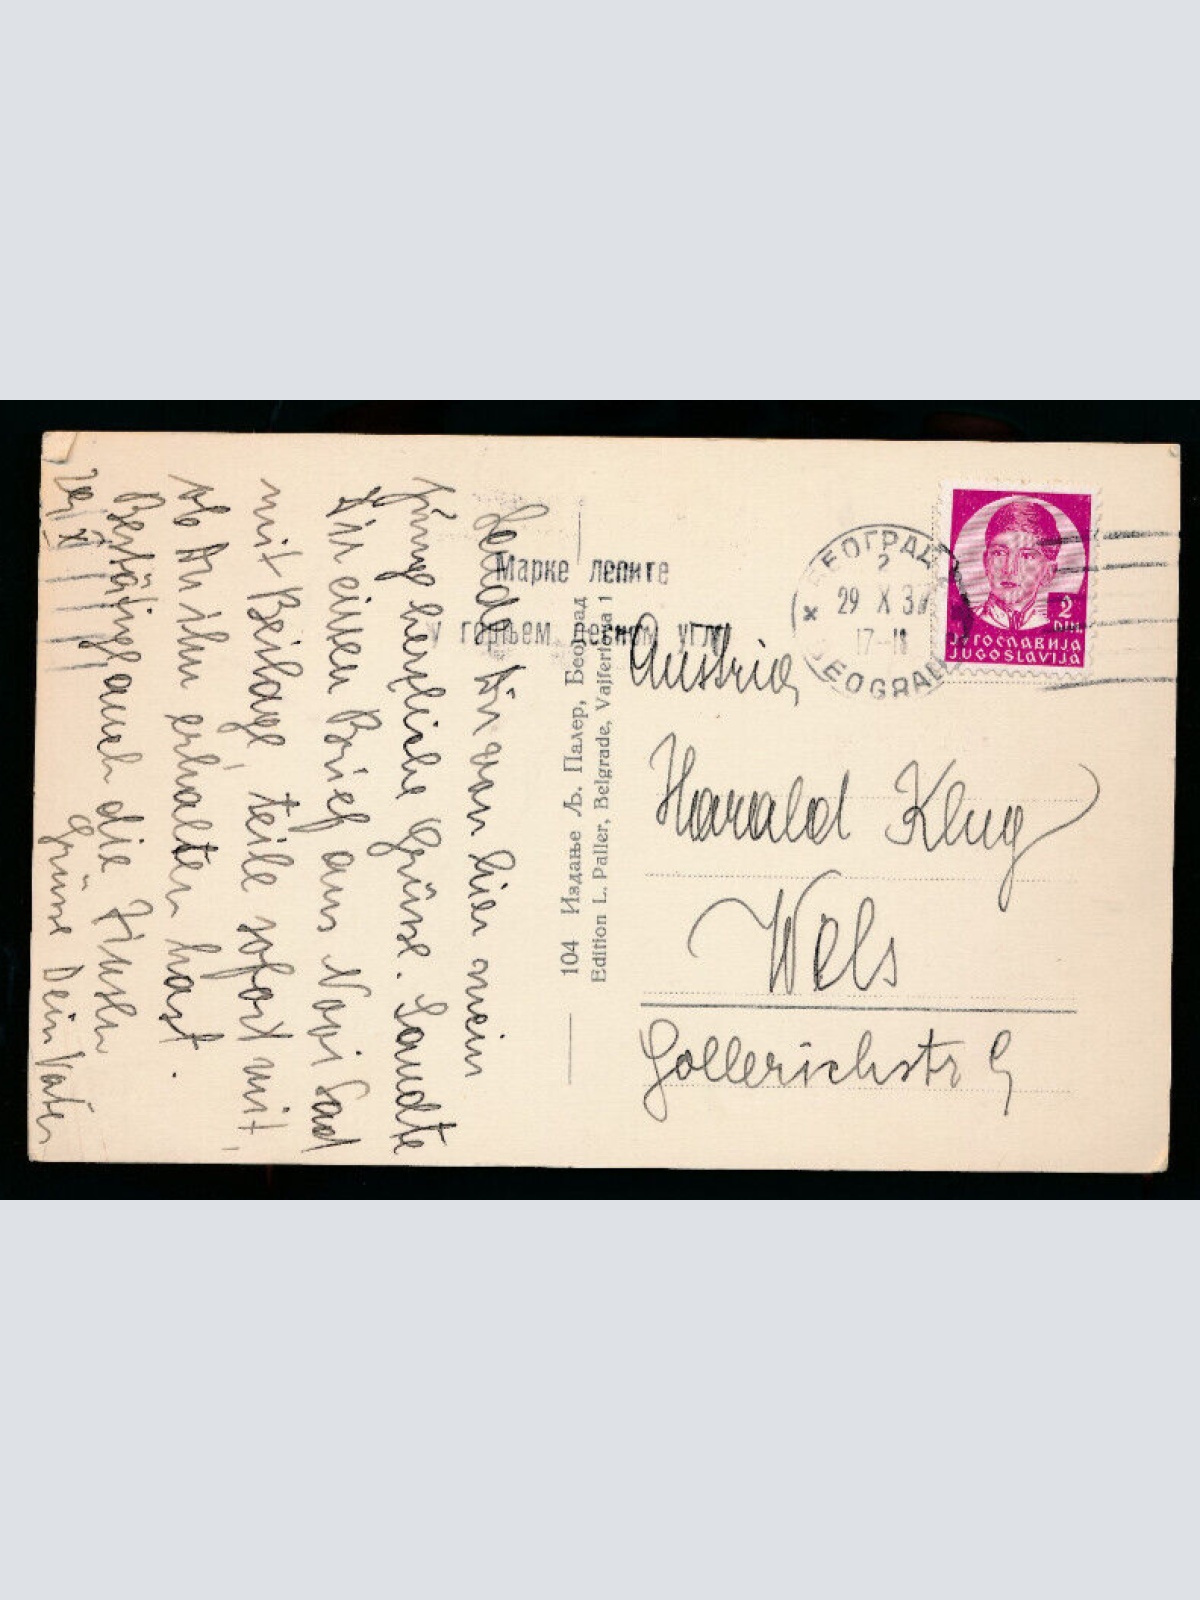 Sende Dir von hier mein
Junge herzliche Grüsse. Sandte
Dir einen Brief aus Novi Sad
mit Beilage, teile sofort mit,
ob Du ihn erhalten hast.
auch die
Grüsse Dein Vater
104 Издање Љ. Палер, Београд
Edition L. Paller, Belgrade, Vajfertova 1
Марке лепите
у горњем десном углу
БЕОГРАД
2
29 X 37
17-18
BEOGRAD
2
DIN.
ЈУГОСЛАВИЈА
JUGOSLAVIJA
Austria
Harald Klug
Wels
Gollerichstr 9